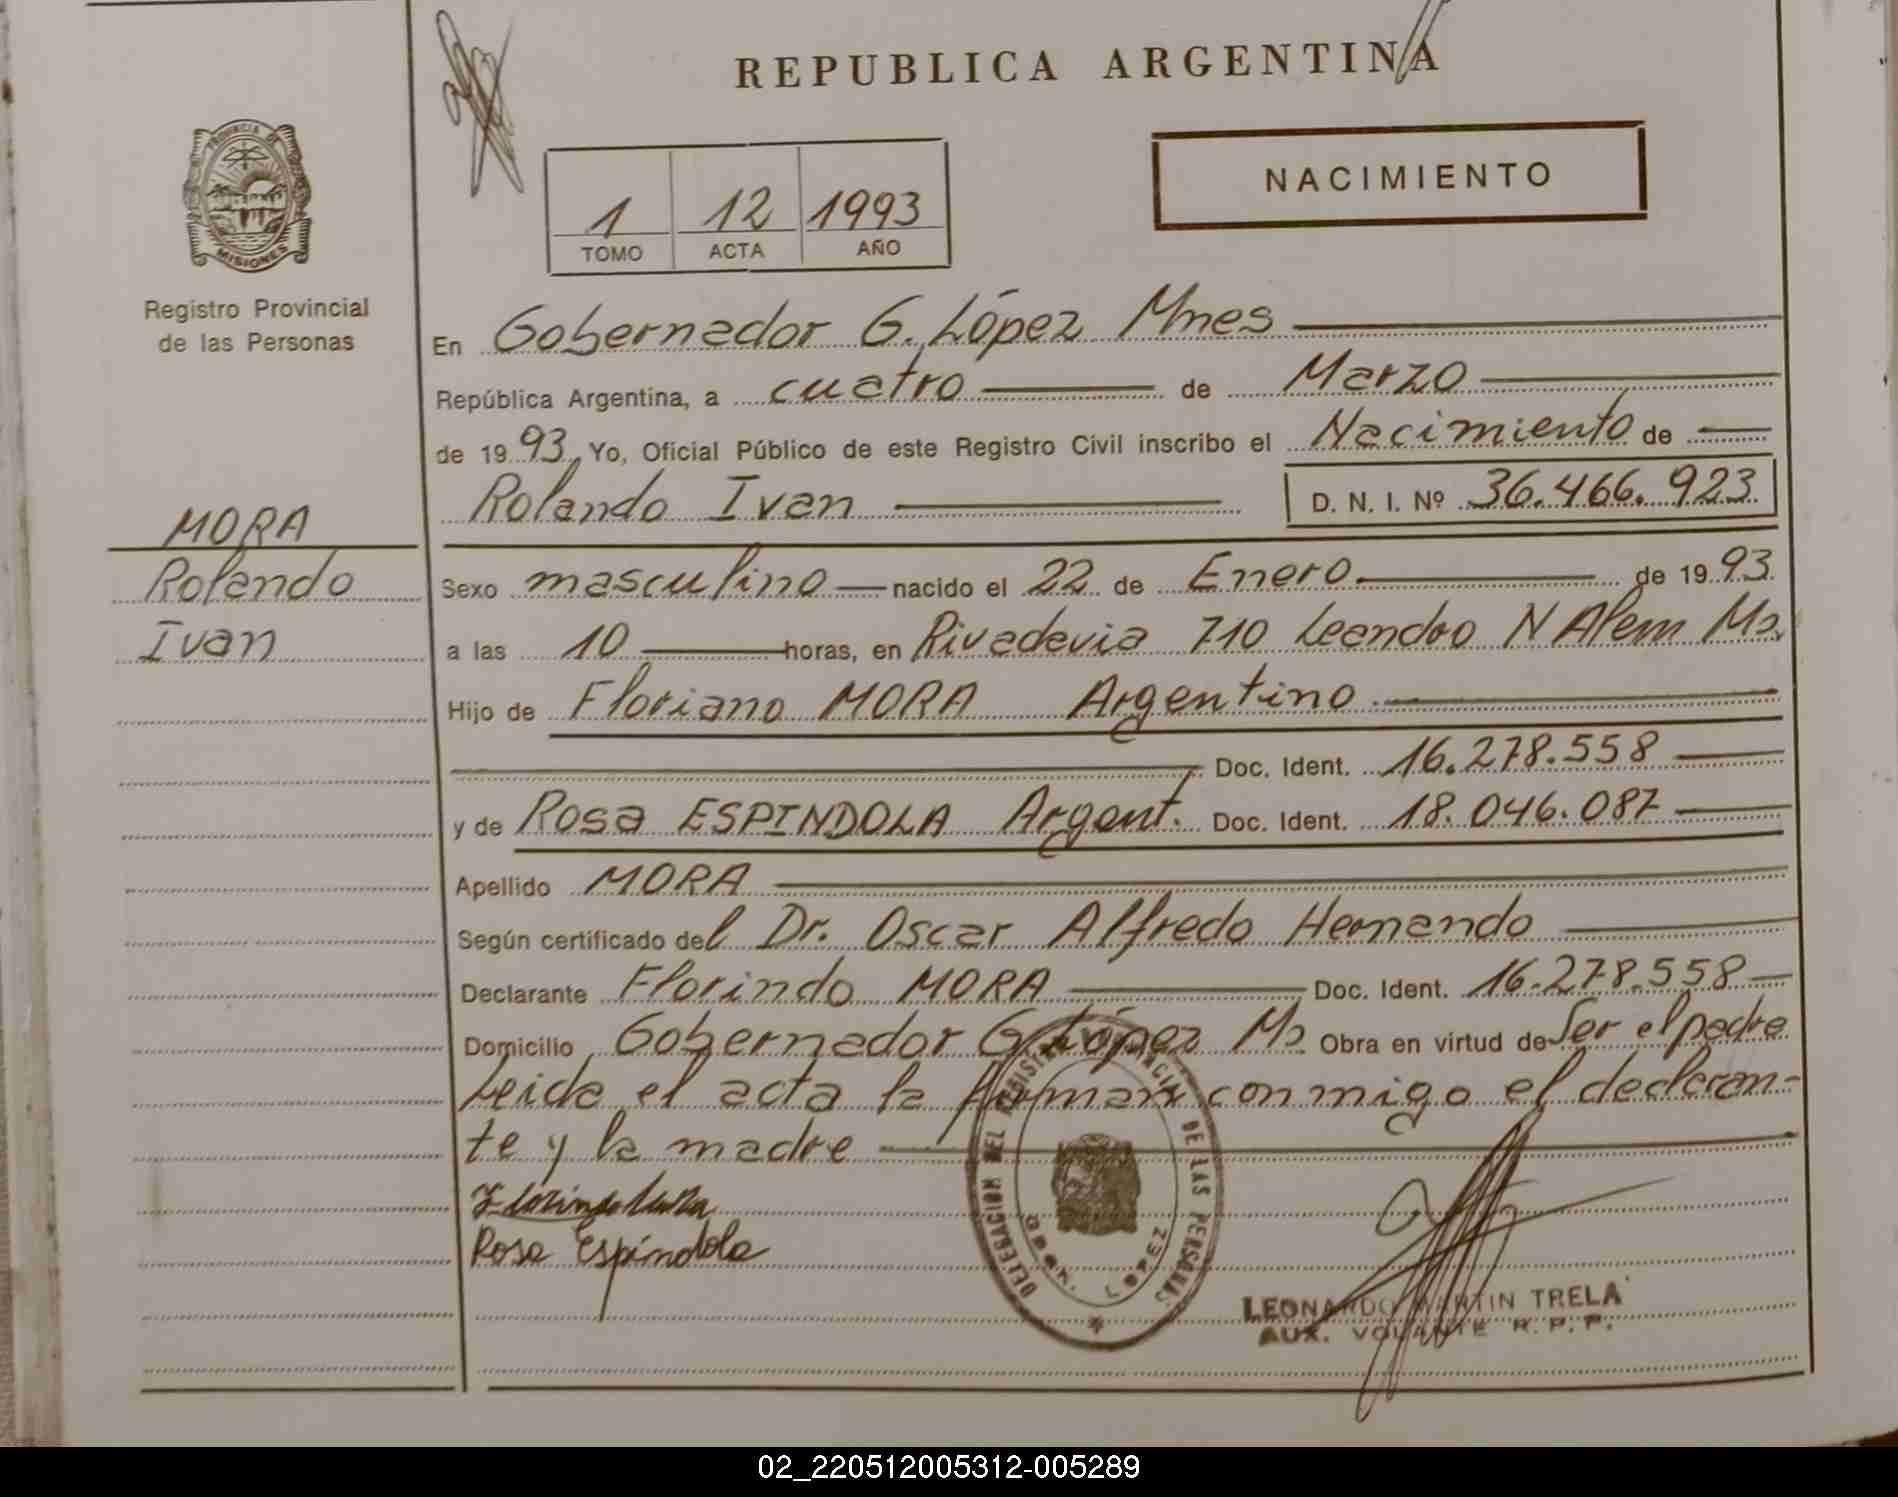 REPUBLICA ARGENTINA
PROVINCIA DE
MISIONES
Registro Provincial
de las Personas
NACIMIENTO
1 12 1993
TOMO ACTA AÑO
En Gobernador G. López Mnes
República Argentina, a cuatro de Marzo
de 1993 Yo, Oficial Público de este Registro Civil inscribo el Nacimiento de
Rolando Ivan D. N. I. Nº 36.466.923
MORA
Rolando
Ivan
Sexo masculino nacido el 22 de Enero de 1993
a las 10 horas, en Rivadavia 710 Leandro N Alem Ms.
Hijo de Floriano MORA Argentino
Doc. Ident. 16.278.558
y de Rosa ESPINDOLA Argent. Doc. Ident. 18.046.087
Apellido MORA
Según certificado del Dr. Oscar Alfredo Hernando
Declarante Florindo MORA Doc. Ident. 16.278.558
Domicilio Gobernador G. López Ms Obra en virtud de Ser el padre
Leida el acta la firman conmigo el declaran-
te y la madre
Florindo Mora
Rosa Espíndola
DELEGACION DEL REGISTRO PROVINCIAL DE LAS PERSONAS
GDOR. LOPEZ
LEONARDO MARTIN TRELA
AUX. VOLANTE R. P. P.
02_220512005312-005289